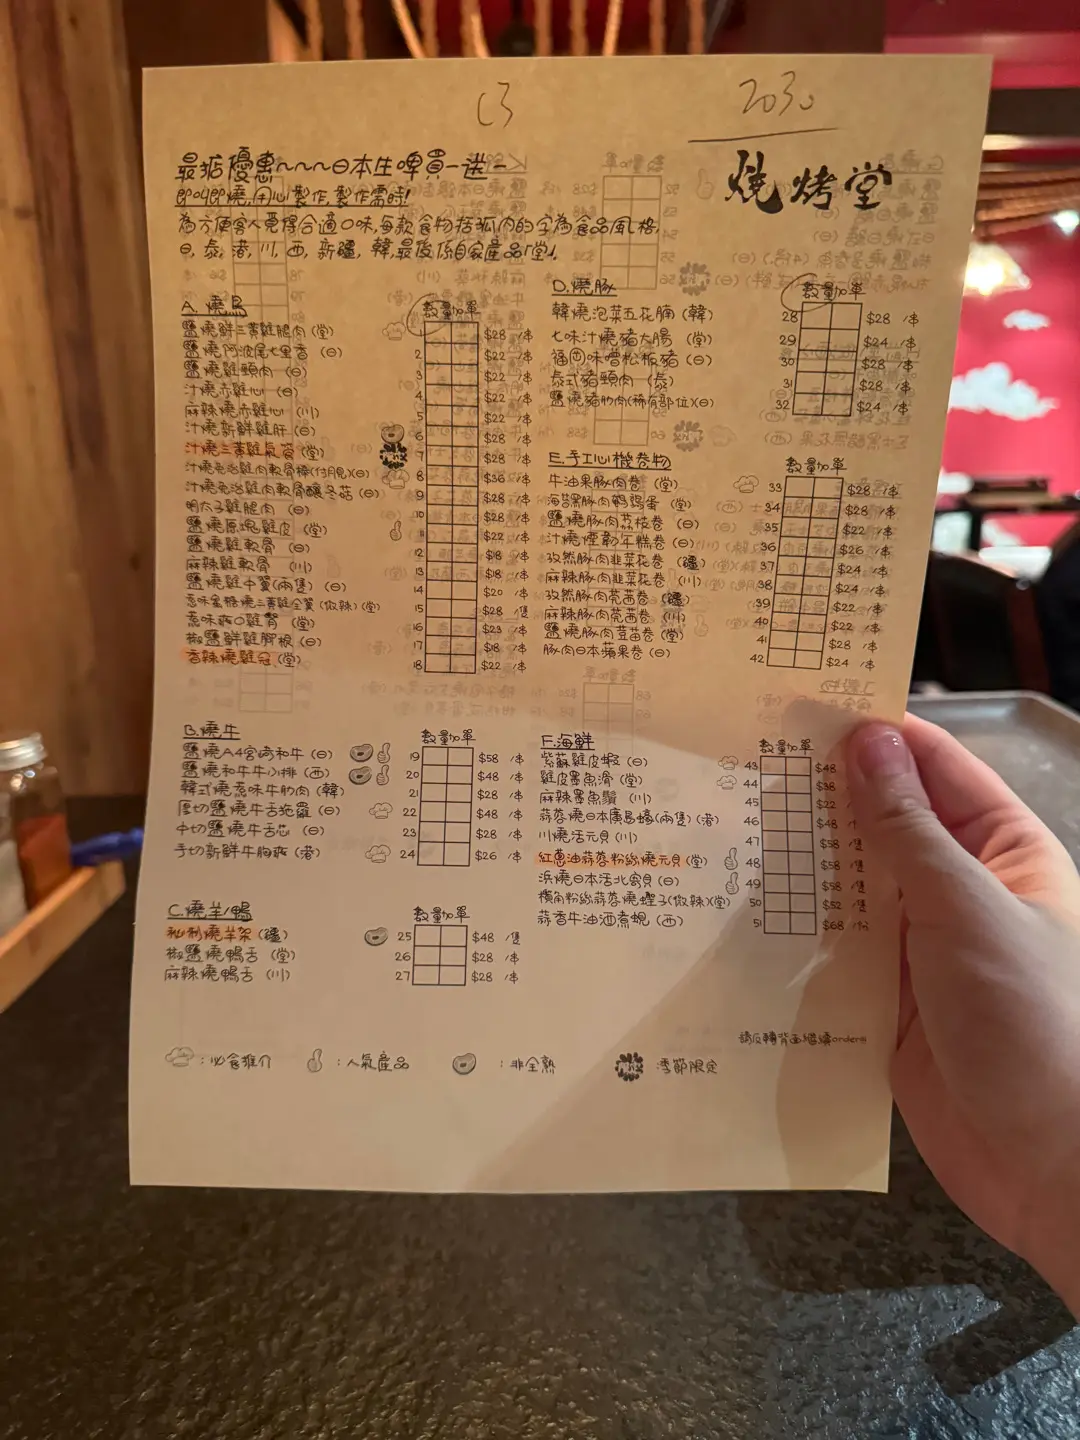 C3
2030
燒烤堂
最強優惠～～～日本生啤買一送一
即叫即燒,用心製作,製作需時!
為方便客人覓得合適口味,每款食物括弧內的字為食品風格,
日,泰,港,川,西,新疆,韓,最後係自家產品「堂」.
A. 燒鳥 數量加單
鹽燒鮮三黃雞腿肉 (堂) 1 $28 /本
鹽燒阿波尾七里香 (日) 2 $22 /本
鹽燒雞頸肉 (日) 3 $22 /本
汁燒赤雞心 (日) 4 $22 /本
麻辣燒赤雞心 (川) 5 $22 /本
汁燒新鮮雞肝 (日) 6 $28 /本
汁燒三黃雞氣管 (堂) 7 $28 /本
汁燒免治雞肉軟骨棒(付月見)(日) 8 $36 /本
汁燒免治雞肉軟骨釀冬菇 (日) 9 $28 /本
明太子雞腿肉 (日) 10 $28 /本
鹽燒原塊雞皮 (堂) 11 $22 /本
鹽燒雞軟骨 (日) 12 $18 /本
麻辣雞軟骨 (川) 13 $18 /本
鹽燒雞中翼(兩隻) (日) 14 $20 /本
惹味蜜糖燒三黃雞全翼 (微辣) (堂) 15 $28 /隻
惹味爽口雞腎 (堂) 16 $23 /本
椒鹽鮮雞腳根 (日) 17 $18 /本
香辣燒雞冠 (堂) 18 $22 /本
B. 燒牛 數量加單
鹽燒A4宮崎和牛 (日) 19 $58 /本
鹽燒和牛牛小排 (西) 20 $48 /本
韓式燒惹味牛肋肉 (韓) 21 $28 /本
厚切鹽燒牛舌拖羅 (日) 22 $48 /本
中切鹽燒牛舌芯 (日) 23 $28 /本
手切新鮮牛胸爽 (港) 24 $26 /本
C. 燒羊/鴨 數量加單
秘制燒羊架 (疆) 25 $48 /隻
椒鹽燒鴨舌 (堂) 26 $28 /本
麻辣燒鴨舌 (川) 27 $28 /本
D. 燒豚 數量加單
韓燒泡菜五花腩 (韓) 28 $28 /本
七味汁燒豬大腸 (堂) 29 $24 /本
福岡味噌松板豬 (日) 30 $28 /本
泰式豬頸肉 (泰) 31 $28 /本
鹽燒豬肋肉(稀有部位)(日) 32 $24 /本
E. 手工心機卷物 數量加單
牛油果豚肉卷 (堂) 33 $28 /本
海苔豚肉鵪鶉蛋 (堂) 34 $28 /本
鹽燒豚肉荔枝卷 (日) 35 $22 /本
汁燒煙韌年糕卷 (日) 36 $26 /本
孜然豚肉韭菜花卷 (疆) 37 $24 /本
麻辣豚肉韭菜花卷 (川) 38 $24 /本
孜然豚肉芫茜卷 (疆) 39 $22 /本
麻辣豚肉芫茜卷 (川) 40 $22 /本
鹽燒豚肉荳苗卷 (堂) 41 $28 /本
豚肉日本蘋果卷 (日) 42 $24 /本
F. 海鮮 數量加單
紫蘇雞皮蝦 (日) 43 $48
雞皮墨魚滑 (堂) 44 $38
麻辣墨魚鬚 (川) 45 $22 /本
蒜蓉燒日本廣島蠔(兩隻) (港) 46 $48
川燒活元貝 (川) 47 $58 /隻
紅蔥油蒜蓉粉絲燒元貝 (堂) 48 $58 /隻
浜燒日本活北寄貝 (日) 49 $58 /隻
欖角粉絲蒜蓉燒蟶子(微辣)(堂) 50 $52 /隻
蒜香牛油酒煮蜆 (西) 51 $68 /份
請反轉背面繼續order!!
:必食推介
:人氣產品
:非全熟
季節限定